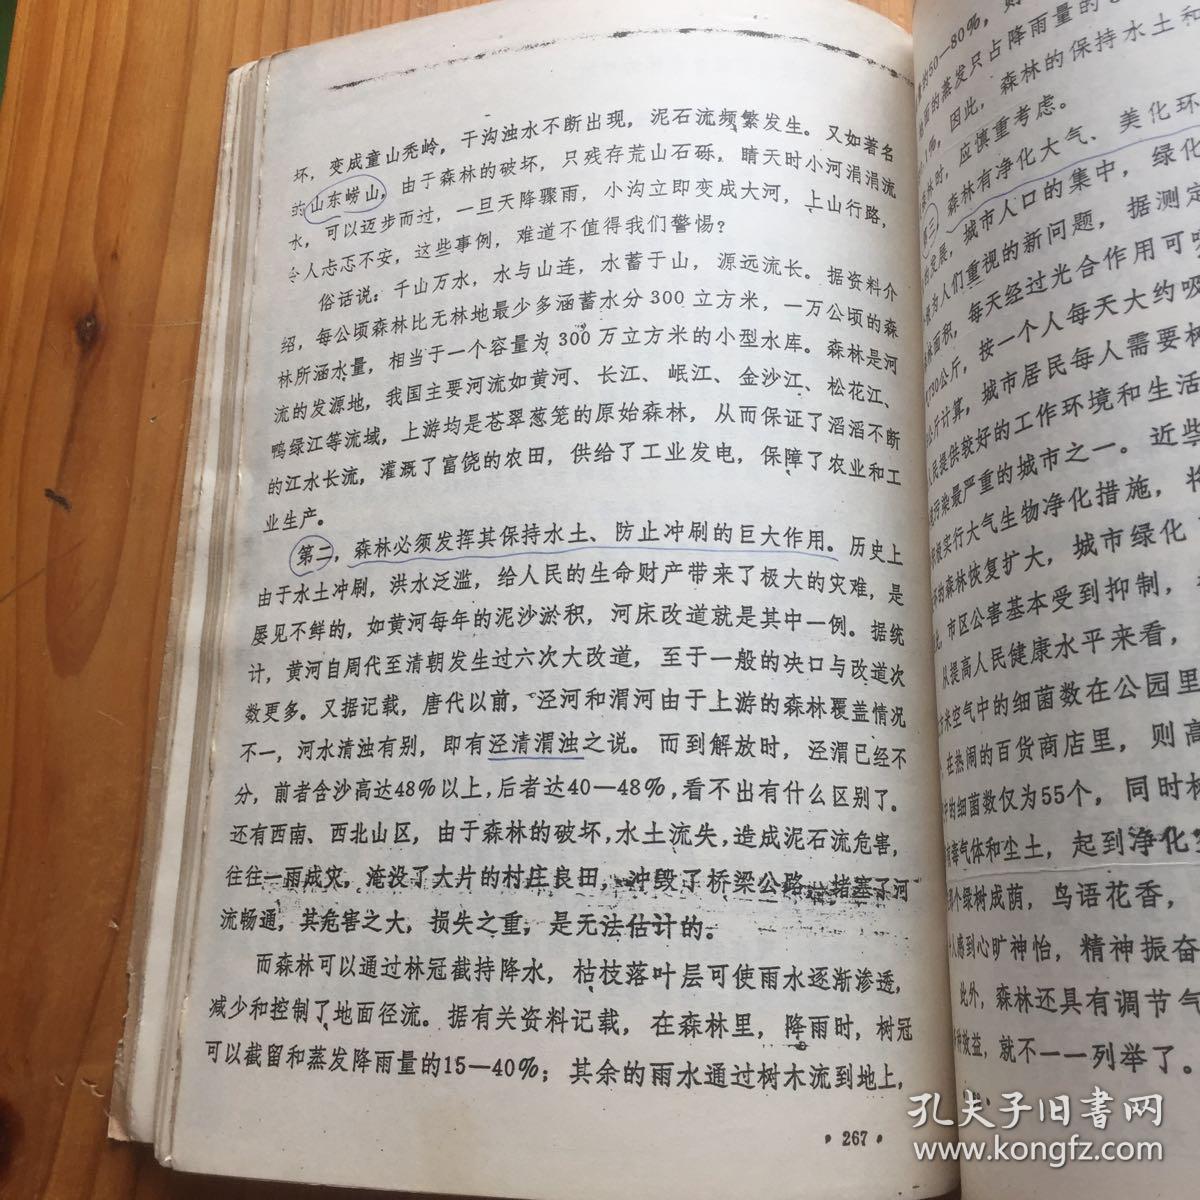 坏，变成童山秃岭，干沟浊水不断出现，泥石流频繁发生。又如著名
的山东崂山，由于森林的破坏，只残存荒山石砾，晴天时小河涓涓流
水，可以迈步而过，一旦天降骤雨，小沟立即变成大河，上山行路，
令人忐忑不安，这些事例，难道不值得我们警惕？
俗话说：千山万水，水与山连，水蓄于山，源远流长。据资料介
绍，每公顷森林比无林地最少多涵蓄水分300立方米，一万公顷的森
林所涵水量，相当于一个容量为300万立方米的小型水库。森林是河
流的发源地，我国主要河流如黄河、长江、岷江、金沙江、松花江、
鸭绿江等流域，上游均是苍翠葱笼的原始森林，从而保证了滔滔不断
的江水长流，灌溉了富饶的农田，供给了工业发电，保障了农业和工
业生产。
第二，森林必须发挥其保持水土、防止冲刷的巨大作用。历史上
由于水土冲刷，洪水泛滥，给人民的生命财产带来了极大的灾难，是
屡见不鲜的，如黄河每年的泥沙淤积，河床改道就是其中一例。据统
计，黄河自周代至清朝发生过六次大改道，至于一般的决口与改道次
数更多。又据记载，唐代以前，泾河和渭河由于上游的森林覆盖情况
不一，河水清浊有别，即有泾清渭浊之说。而到解放时，泾渭已经不
分，前者含沙高达48%以上，后者达40—48%，看不出有什么区别了。
还有西南、西北山区，由于森林的破坏，水土流失，造成泥石流危害，
往往一雨成灾，淹没了大片的村庄良田，冲毁了桥梁公路，堵塞了河
流畅通，其危害之大，损失之重，是无法估计的。
而森林可以通过林冠截持降水，枯枝落叶层可使雨水逐渐渗透，
减少和控制了地面径流。据有关资料记载，在森林里，降雨时，树冠
可以截留和蒸发降雨量的15—40%；其余的雨水通过树木流到地上，
·267·
的50—80%，则
地面的蒸发只占降雨量的
1%，因此，森林的保持水土和
森林时，应慎重考虑。
第三，森林有净化大气、美化环
的发展，城市人口的集中，绿化
为人们重视的新问题，据测定
林面积，每天经过光合作用可
730公斤，按一个人每天大约吸
公斤计算，城市居民每人需要林
人民提供较好的工作环境和生活
污染最严重的城市之一。近些
积极实行大气生物净化措施，将
的森林恢复扩大，城市绿化
市区公害基本受到抑制，
从提高人民健康水平来看，
方米空气中的细菌数在公园里
在热闹的百货商店里，则高
中的细菌数仅为55个，同时林
有毒气体和尘土，起到净化
那个绿树成荫，鸟语花香，
人感到心旷神怡，精神振奋
此外，森林还具有调节气
种效益，就不一一列举了。
孔夫子旧书网
www.kongfz.com